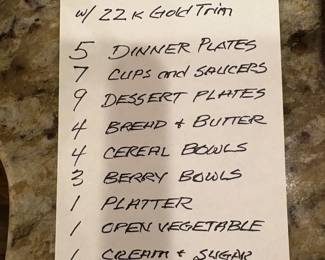 w/ 22K Gold Trim
5 DINNER PLATES
7 CUPS and SAUCERS
9 DESSERT PLATES
4 BREAD & BUTTER
4 CEREAL BOWLS
3 BERRY BOWLS
1 PLATTER
1 OPEN VEGETABLE
1 CREAM & SUGAR